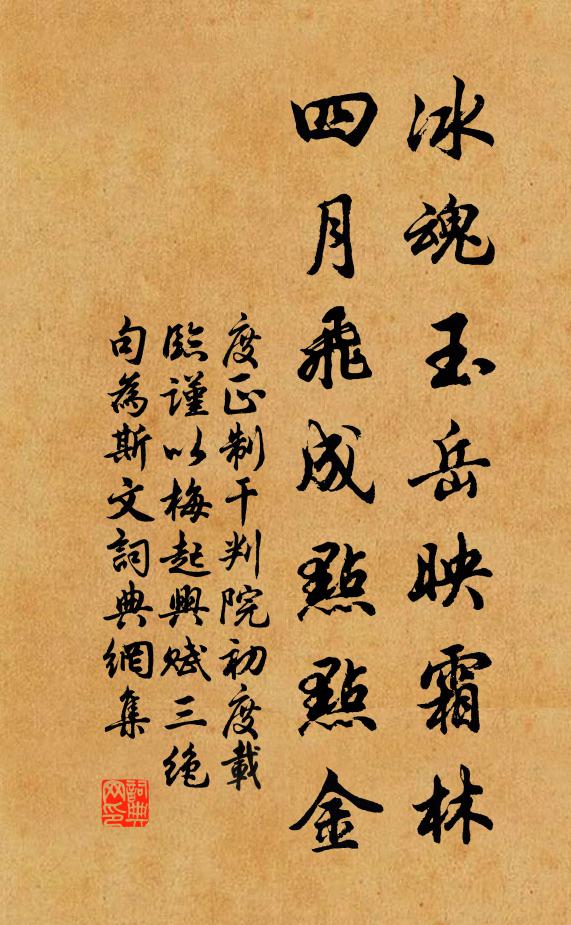 冰魂玉岳映霜林
四月飛成點點金
度正制干判院初度載
臨謹以梅起興賦三絶
句為斯文詞典網集
詞典
网印